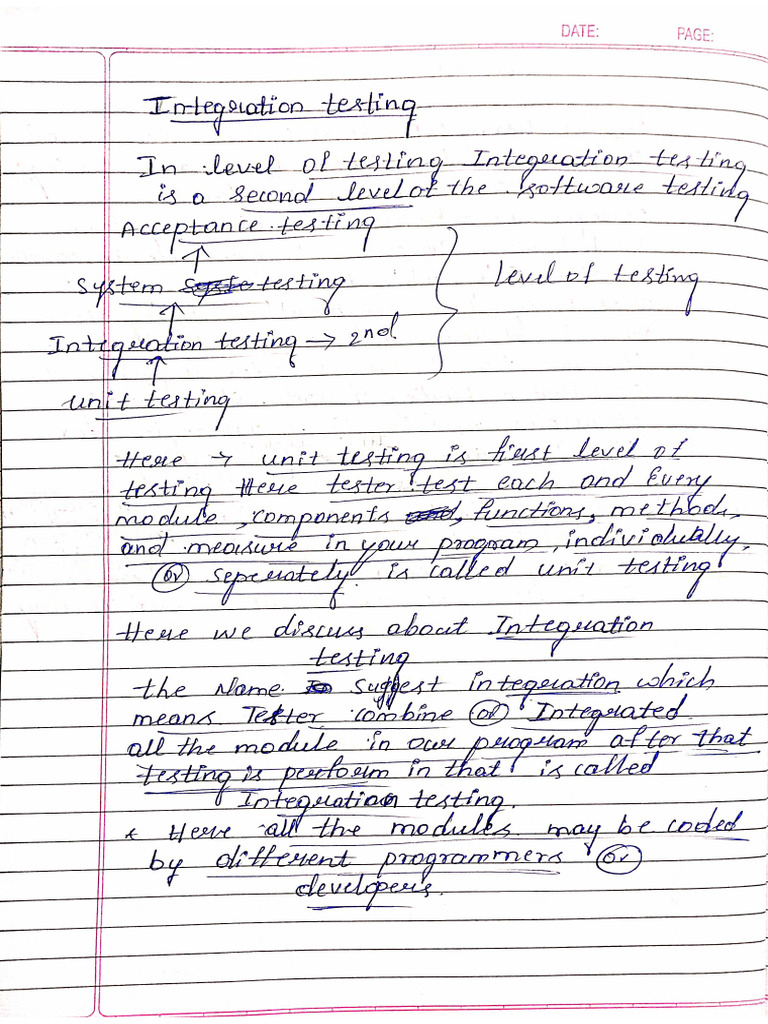 DATE: PAGE:
Integration testing
In level of testing Integration testing
is a second level of the software testing
Acceptance testing
↑
System testing
level of testing
↑
Integration testing → 2nd
↑
unit testing
Here → unit testing is first level of
testing Here tester test each and Every
module, components, functions, methods,
and measure in your program, individually,
(or) seperately is called unit testing
Here we discuss about Integration
testing
the Name suggest integration which
means Tester combine (or) Integrated
all the module in our program after that
testing is perform in that is called
Integration testing.
* Here all the modules may be coded
by different programmers (or)
developers.